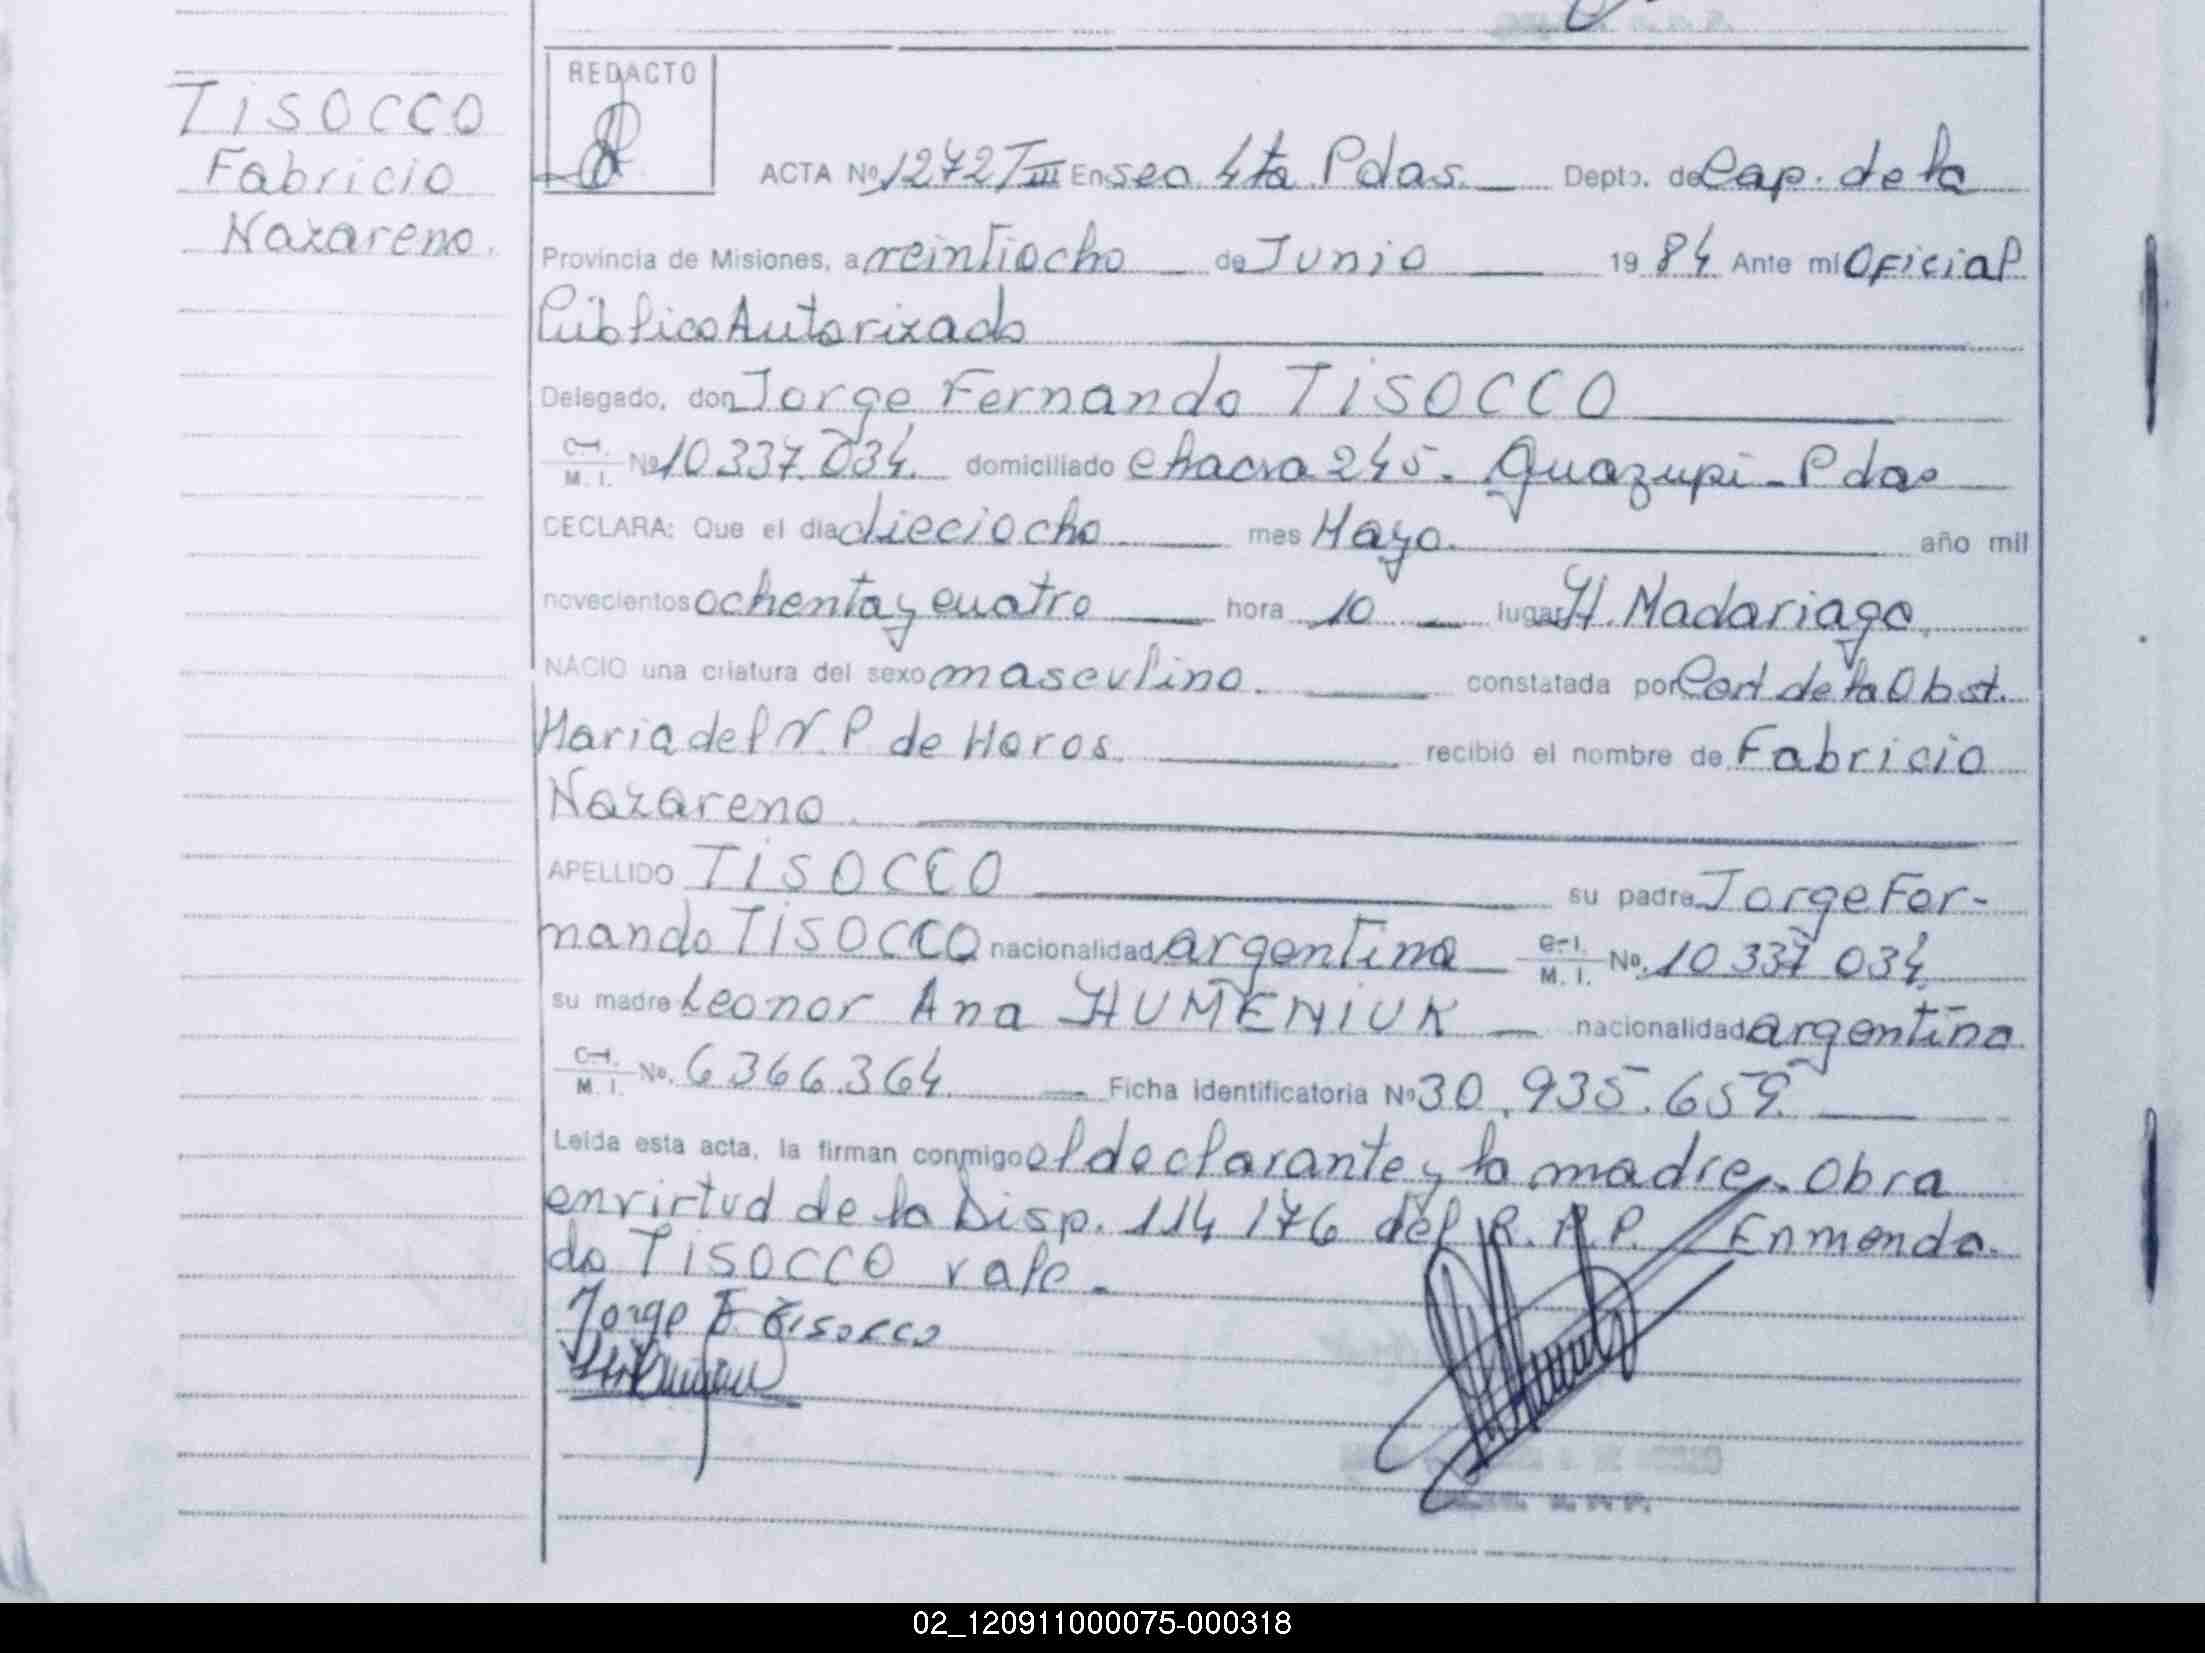 TISOCCO
Fabricio
Nazareno.
REDACTO
ACTA Nº 1272 T III En sec 4ta Pdas. Depto. de Cap. de la
Provincia de Misiones, a veintiocho de Junio 19 84 Ante mi Oficial
Público Autorizado
Delegado, don Jorge Fernando TISOCCO
C.I. M. I. Nº 10.337.034. domiciliado chacra 245. Guazupi - Pdas
DECLARA: Que el día dieciocho mes Mayo. año mil
novecientos ochenta y cuatro hora 10 lugar H. Madariaga,
NACIO una criatura del sexo masculino. constatada por Cert de la Obst.
Maria del N. P. de Horos. recibió el nombre de Fabricio
Nazareno.
APELLIDO TISOCCO su padre Jorge Fer-
nando TISOCCO nacionalidad argentina C.I. M. I. Nº. 10 337 034
su madre Leonor Ana HUMENIUK nacionalidad argentina
C.I. M. I. Nº. 6366.364. Ficha identificatoria Nº 30.935.659.
Leida esta acta, la firman conmigo el declarante y la madre. Obra
en virtud de la Disp. 114/76 del R.N.P. Enmenda.
do TISOCCO vale.
Jorge F Tisocco
02_120911000075-000318